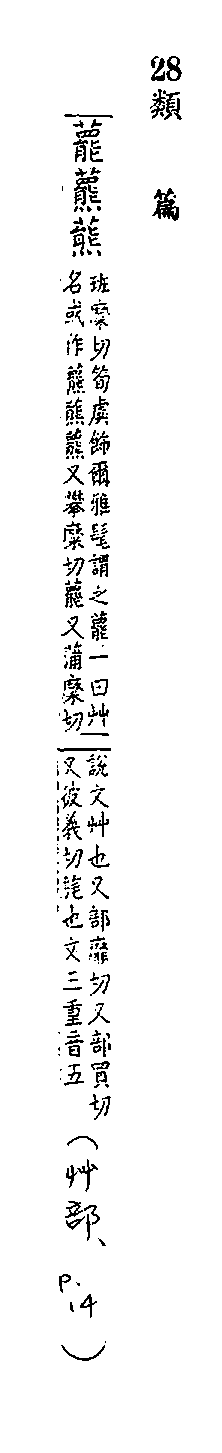 28
類篇
藣
班麋切筍虡飾爾雅髦謂之藣一曰艸
名或作又攀麋切藣又蒲麋切
說文艸也又部靡切又部買切
又彼義切旄也文三重音五
（艸部、p.14）